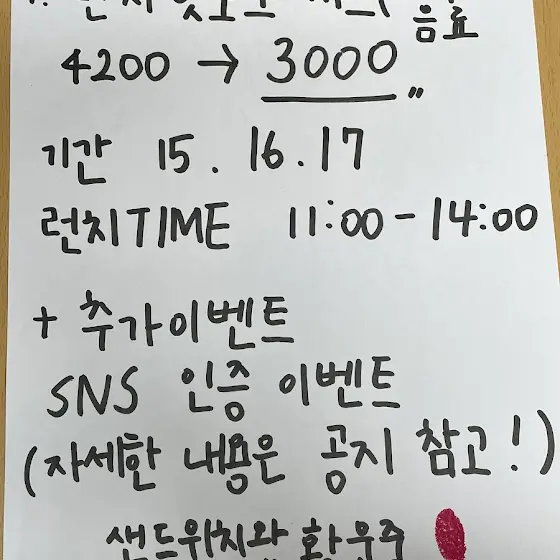 음료
4200 → 3000〃
기간 15 . 16 . 17
런치TIME 11:00 - 14:00
+ 추가이벤트
SNS 인증 이벤트
(자세한 내용은 공지 참고!)
샌드위치와